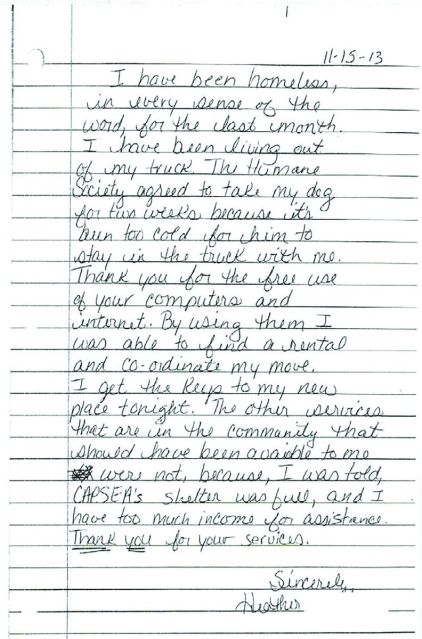 11-15-13
I have been homeless,
in every sense of the
word, for the last month.
I have been living out
of my truck. The Humane
Society agreed to take my dog
for two weeks because it's
been too cold for him to
stay in the truck with me.
Thank you for the free use
of your computers and
internet. By using them I
was able to find a rental
and co-ordinate my move.
I get the keys to my new
place tonight. The other services
that are in the community that
should have been avaible to me
were not, because, I was told,
CAPSEA's shelter was full, and I
have too much income for assistance.
Thank you for your services.
Sincerely,
Heather